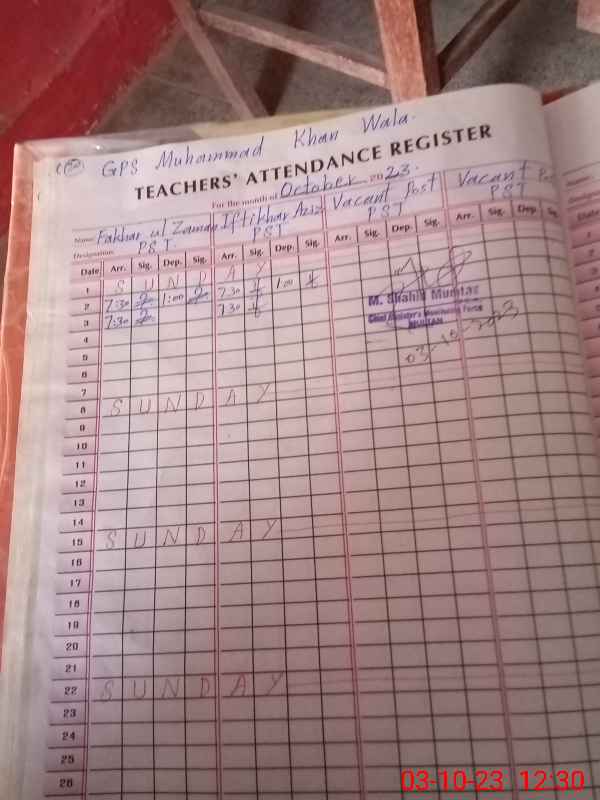 GPS Muhammad Khan Wala.
TEACHERS' ATTENDANCE REGISTER
For the month of October 2023.
Name Fakhar ul Zaman Iftikhar Aziz Vacant Post Vacant
Designation PST PST PST PST
Date Arr. Sig. Dep. Sig. Arr. Sig. Dep. Sig. Arr. Sig. Dep. Sig. Arr. Sig. Dep.
1 S U N D A Y
2 7:30 1:00 7:30 1:00
3 7:30 7:30
M. Shahid Mumtaz
Chief Minister's Monitoring Force
MULTAN
03-10-2023
4
5
6
7
8 S U N D A Y
9
10
11
12
13
14
15 S U N D A Y
16
17
18
19
20
21
22 S U N D A Y
23
24
25
26
03-10-23 12:30